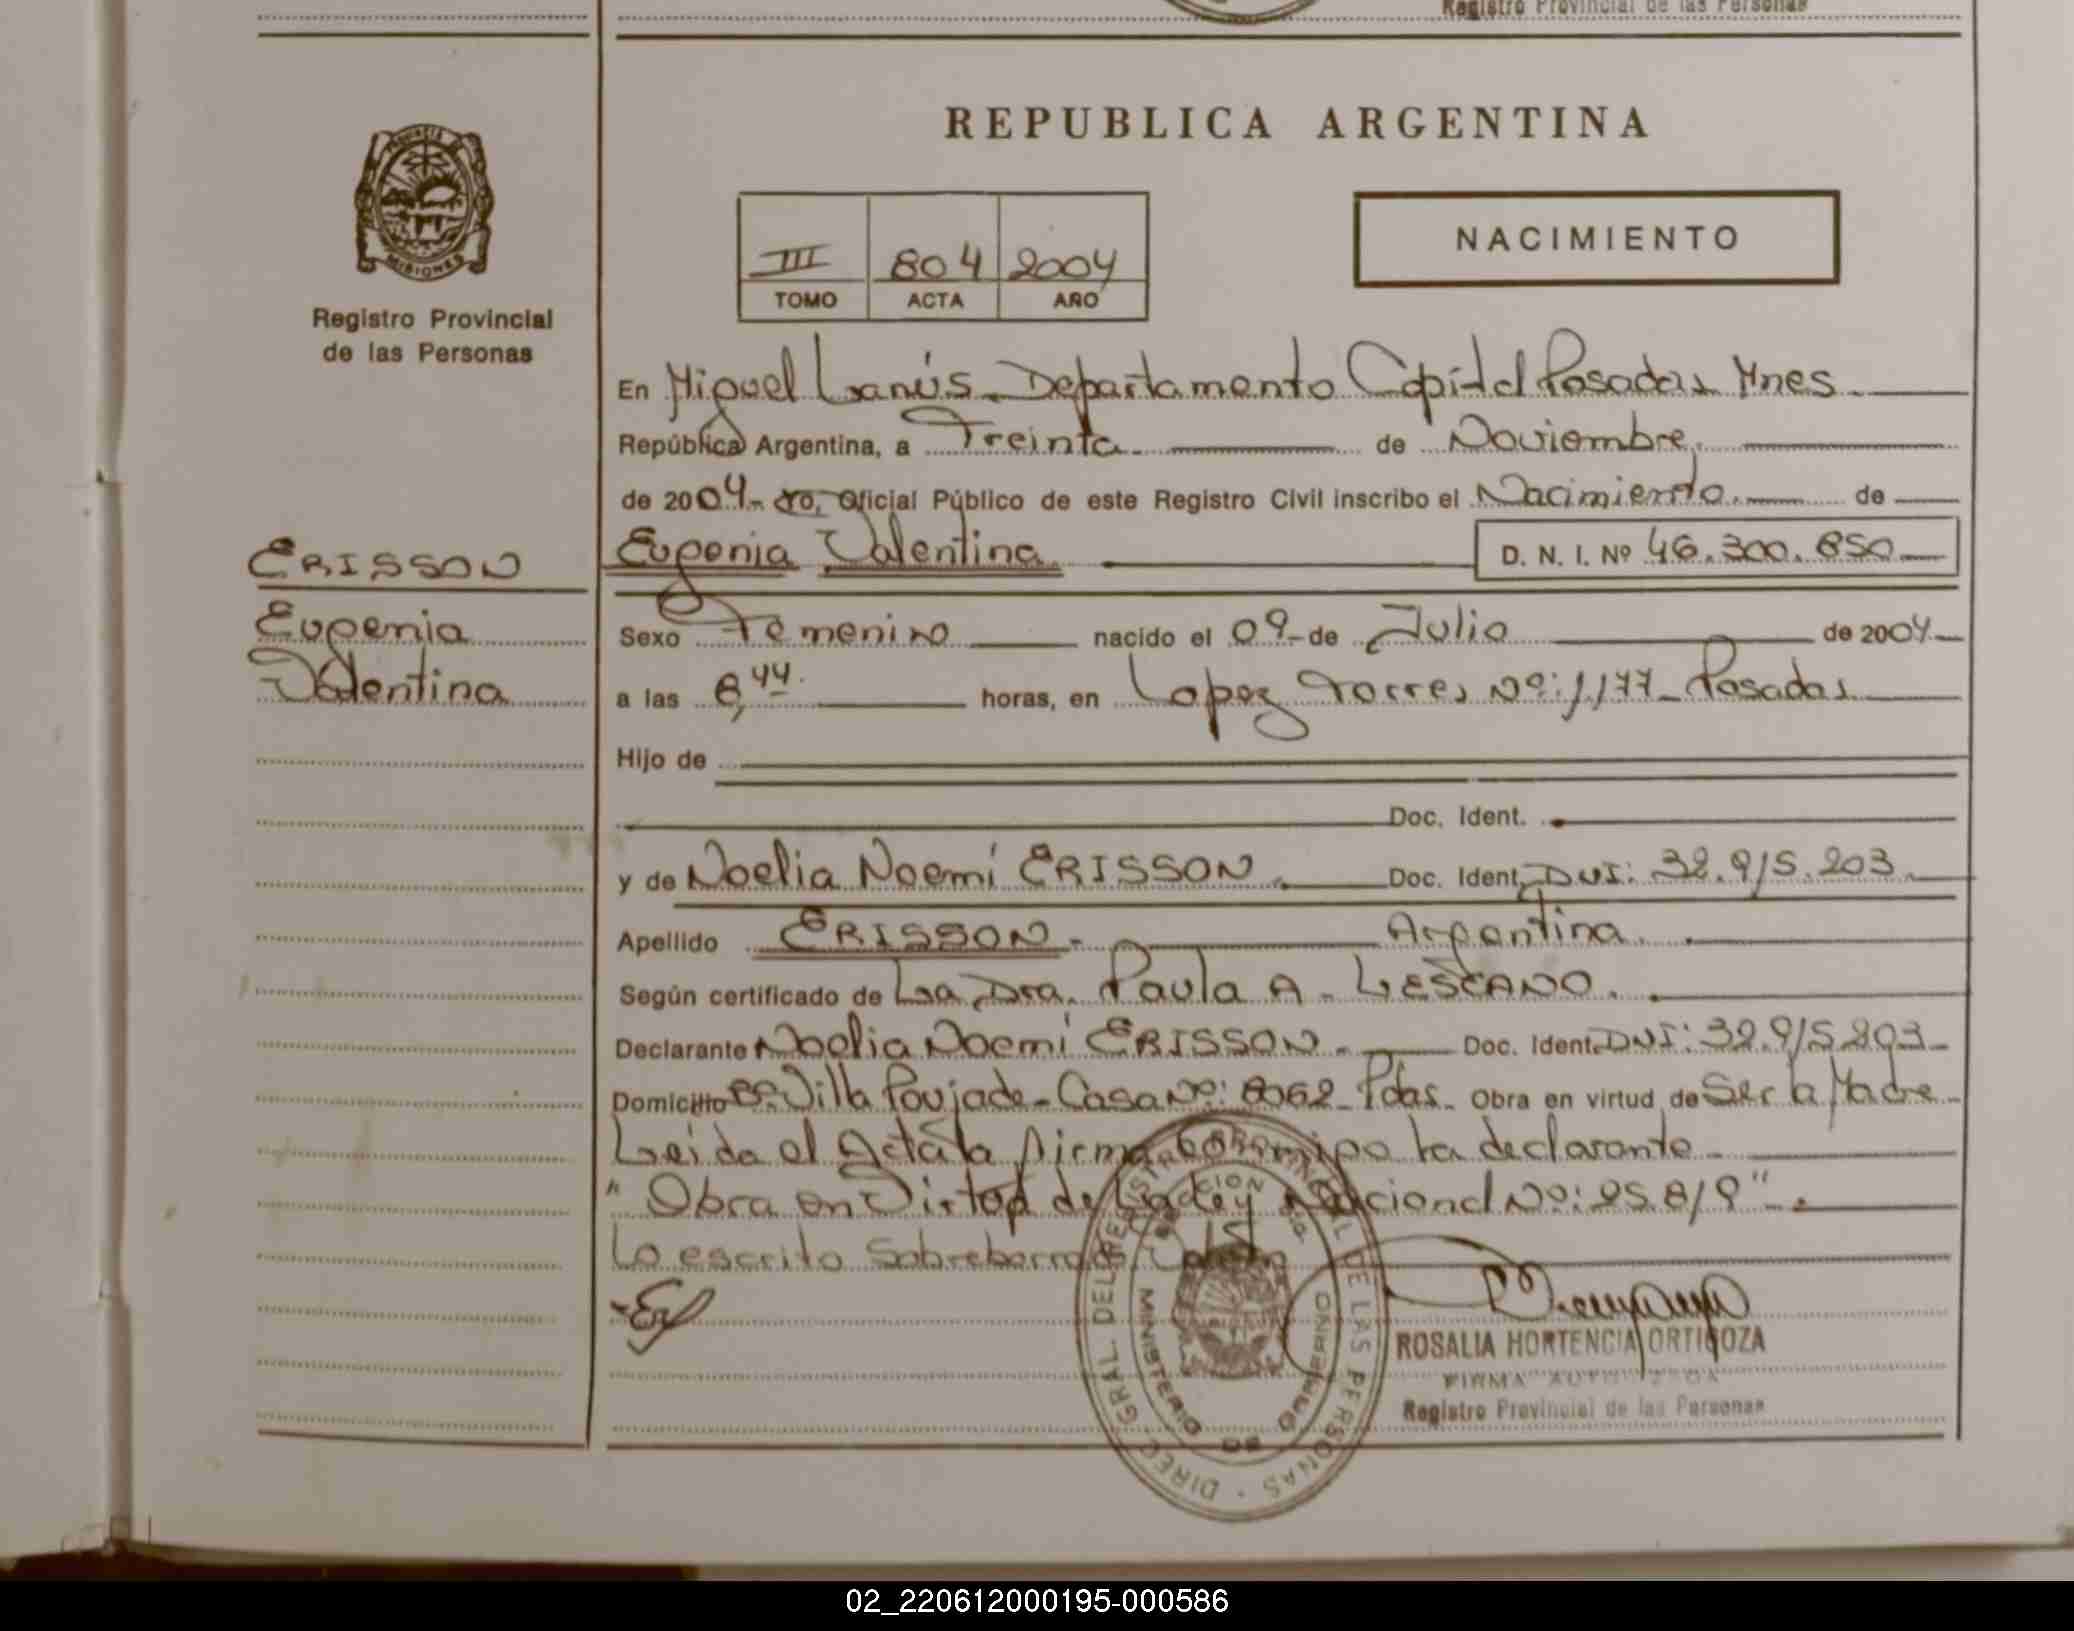 Registro Provincial de las Personas
REPUBLICA ARGENTINA
MISIONES
Registro Provincial
de las Personas
III 804 2004
TOMO ACTA AÑO
NACIMIENTO
En Miguel Lanús. Departamento Capital Posadas Mnes.
República Argentina, a Treinta. de Noviembre.
de 2004.- Yo, Oficial Público de este Registro Civil inscribo el Nacimiento. de
ERISSON
Eugenia Valentina. D. N. I. Nº 46.300.850
Eugenia
Valentina
Sexo Femenino nacido el 09 de Julio de 2004
a las 8,44. horas, en Lopez Torres Nº: 1177 Posadas
Hijo de
Doc. Ident.
y de Noelia Noemí ERISSON. Doc. Ident. DNI: 32.915.203.
Apellido ERISSON. Argentina.
Según certificado de La Dra. Paula A. LESCANO.
Declarante Noelia Noemí ERISSON. Doc. Ident. DNI: 32.915.203
Domicilio Bº Villa Poujade - Casa Nº: 8062 - Pdas. Obra en virtud de Ser la Madre
Leída el Acta la firma conmigo la declarante
" Obra en Virtud de la Ley Nacional Nº: 25.819".
Lo escrito Sobreborrado:
DIREC. GRAL. DEL REGISTRO PROVINCIAL DE LAS PERSONAS
MINISTERIO DE GOBIERNO
ROSALIA HORTENCIA ORTIGOZA
FIRMA AUTORIZADA
Registro Provincial de las Personas
02_220612000195-000586